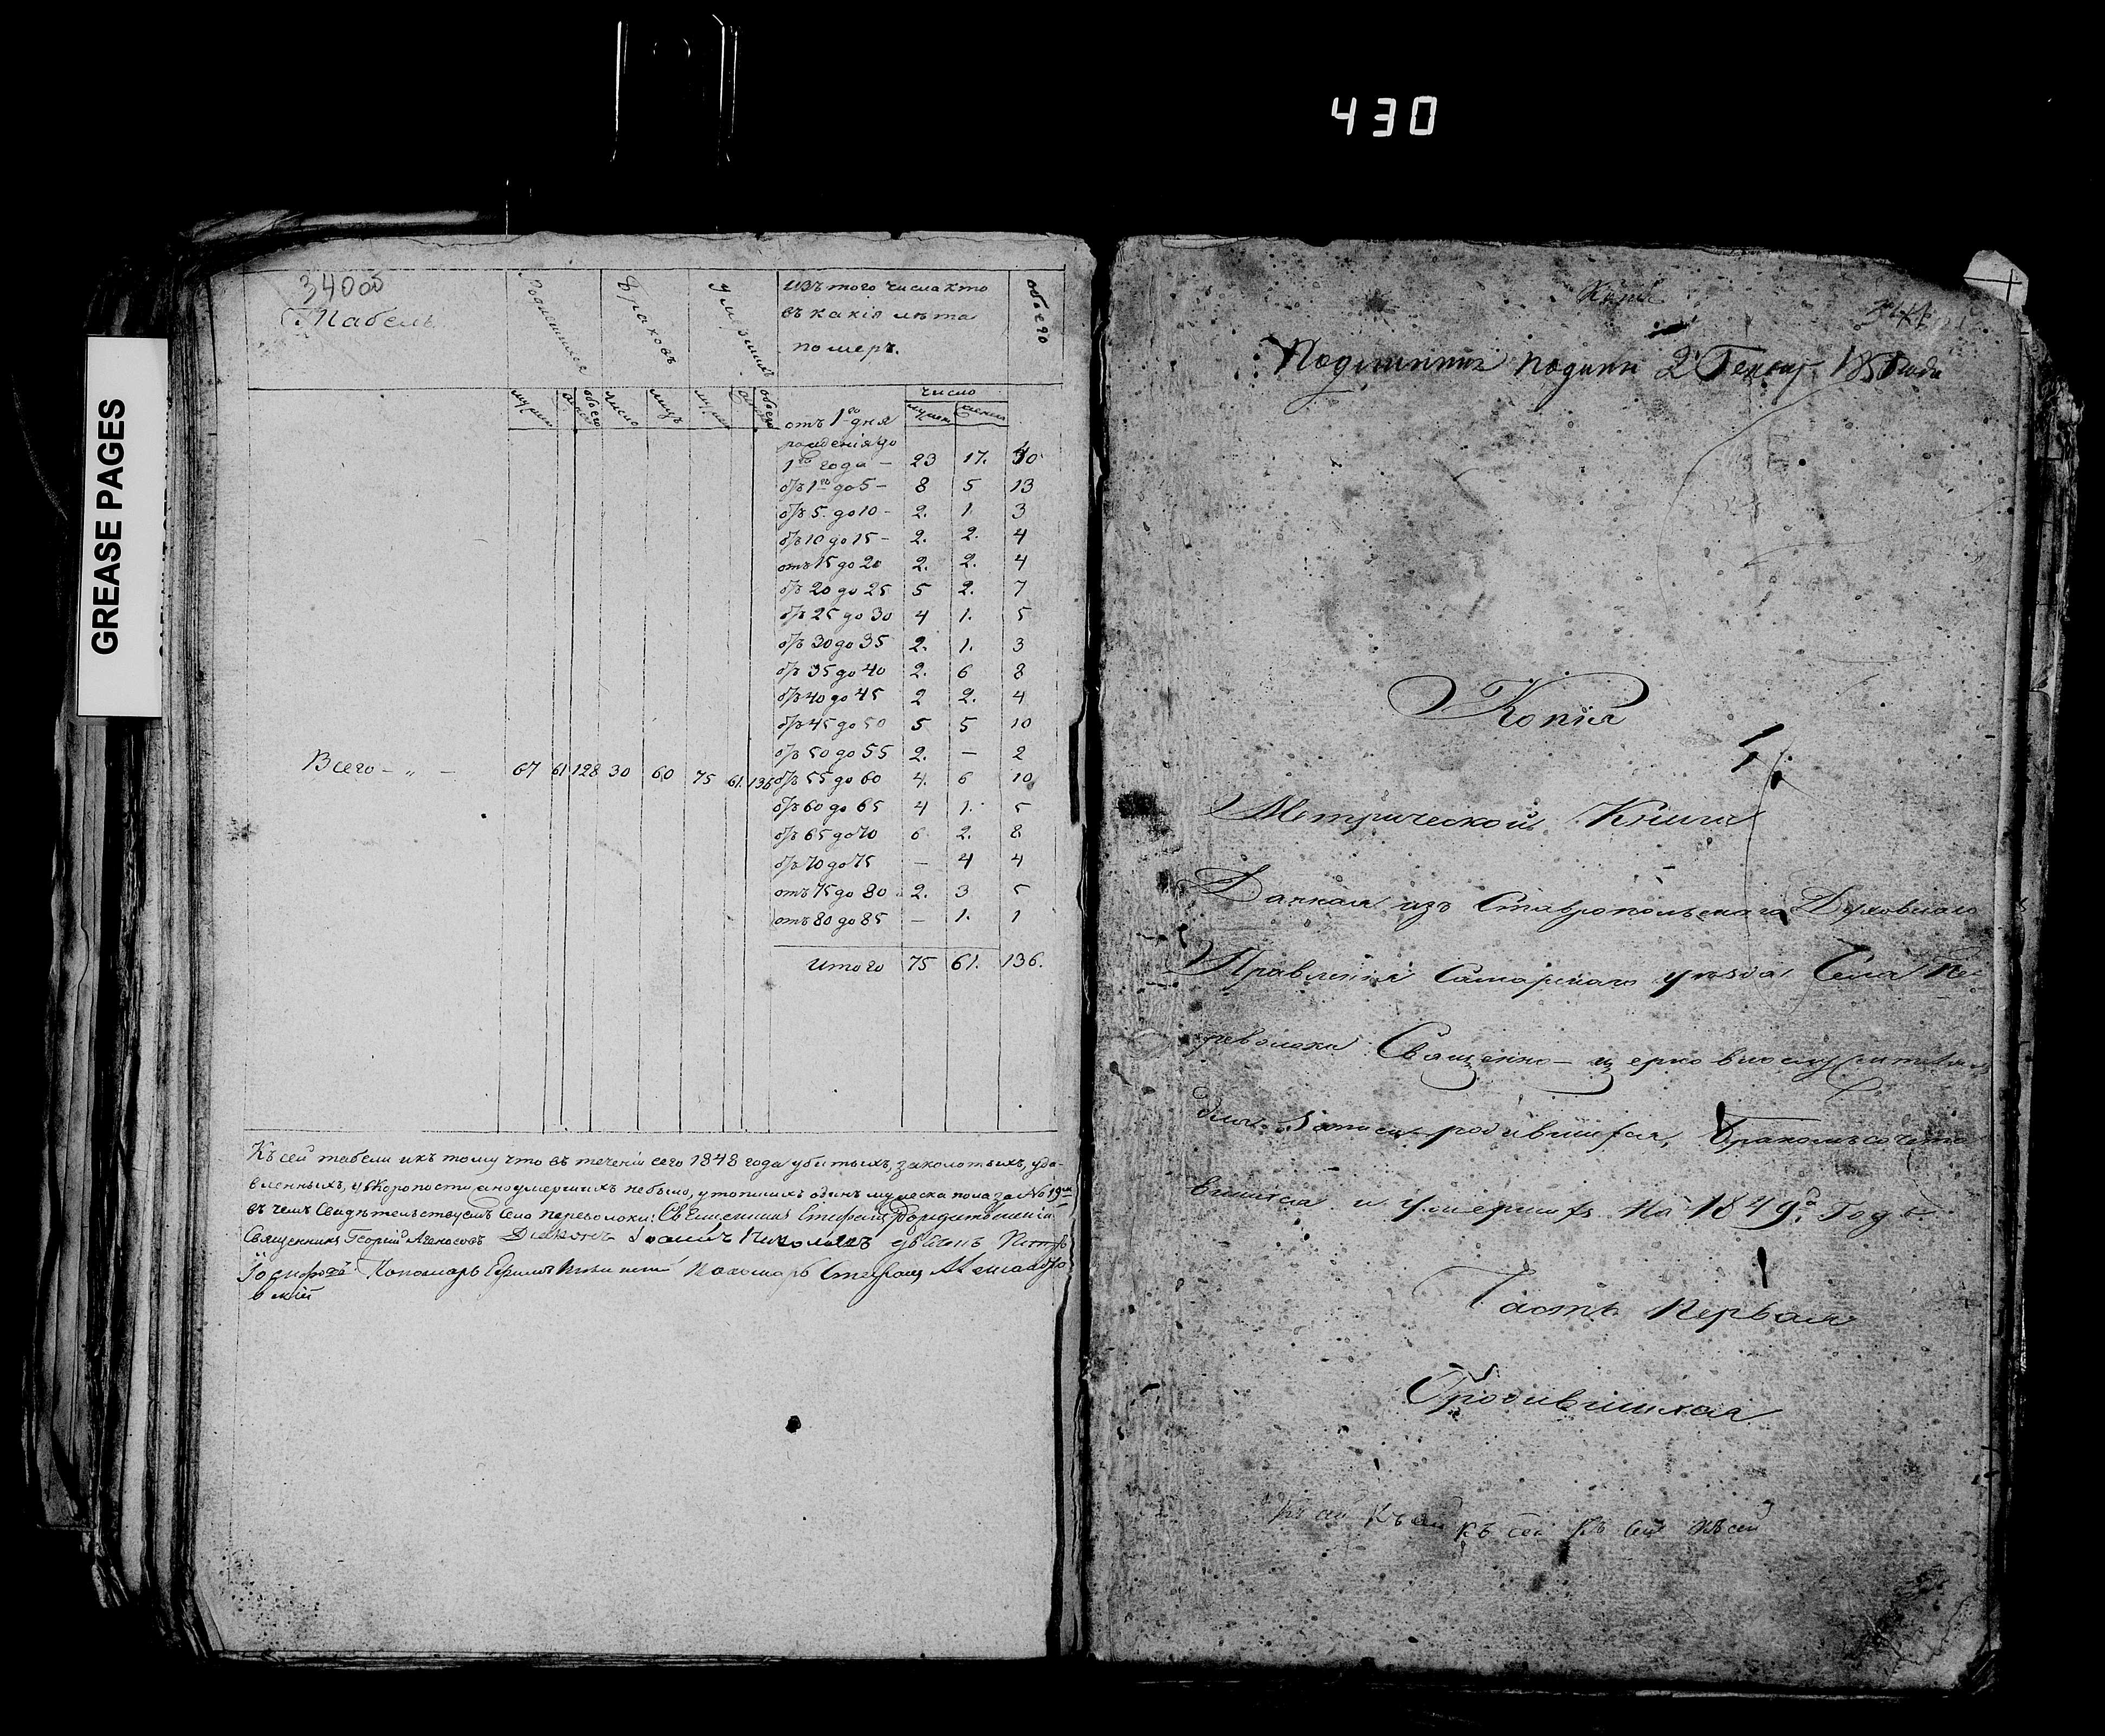 430
GREASE PAGES
340об
Табель
Родившихся
Браковъ
Умершихъ
Изъ того числа кто
въ какія лѣта
померъ.
обоего
мужск
женск
обоего
число
лицъ
мужск
женск
обоего
число
мужск
женск
отъ 1го дня
рожденія до
1го года – 23 17. 40
отъ 1го до 5 – 8 5 13
отъ 5. до 10 – 2. 1. 3
отъ 10 до 15 – 2. 2. 4
отъ 15 до 20 2. 2. 4
отъ 20 до 25 5 2. 7
отъ 25 до 30 4 1. 5
отъ 30 до 35 2. 1. 3
отъ 35 до 40 2. 6 8
отъ 40 до 45 2 2. 4
отъ 45 до 50 5 5 10
отъ 50 до 55 2. — 2
Всего – „ – 67 61 128 30 60 75 61. 136
отъ 55 до 60 4. 6 10
отъ 60 до 65 4 1. 5
отъ 65 до 70 6 2. 8
отъ 70 до 75 — 4 4
отъ 75 до 80 2. 3 5
отъ 80 до 85 — 1. 1
Итого 75 61. 136.
Къ сей табели икъ тому что въ теченіи сего 1848 года убитыхъ, заколотыхъ, уда-
вленныхъ, искоропостижноумершихъ небыло, утопшихъ одинъ мужеска пола за No 19м
въ чемъ Свидѣтельствуемъ Села Переволоки: Священникъ Стефанъ
Священникъ Георгій Діаконъ Іоаннъ Николаевъ
Пономарь Пономарь Стефанъ
Копія
Метрической Книги
Данная изъ Ставропольскаго Духовнаго
Правленія Самарскаго уѣзда Села Пе-
револоки Священно-церковнослужителямъ
для записи родившихся, Бракомъ сочета
вшихся и умершихъ на 1849й Годъ
Часть Первая
О родившихся
Къ сей Къ сей Къ сей Къ сей Къ сей